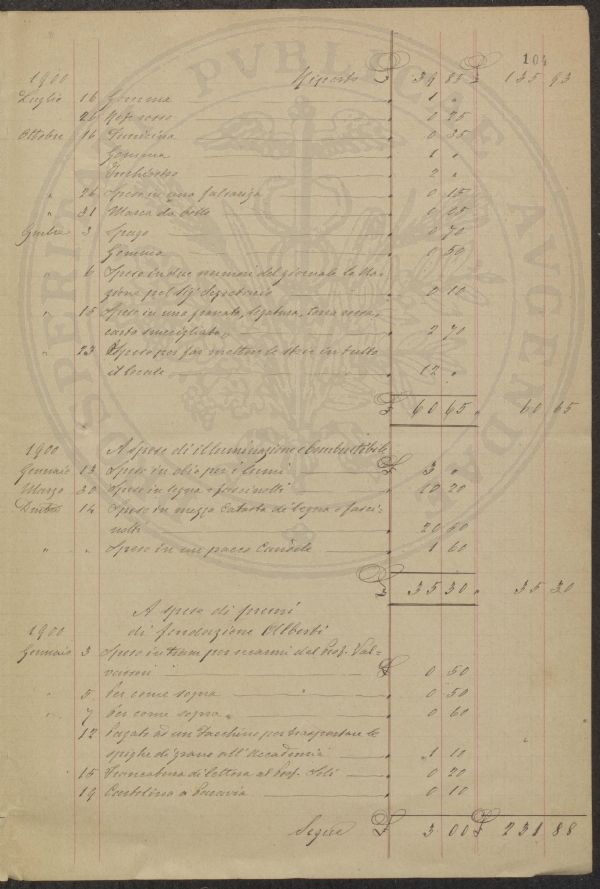 104
1900 Riporto £ 39 85 £ 135 93
Luglio 16 Gomma 1 "
26 rosso 0 25
Ottobre 16 0 35
Gomma 1 "
Inchiostro 2 "
" 26 Spese in una 0 15
" 31 Marca da bollo 0 05
9mbre 3 Spago 0 70
Gomma 0 50
6 Spese in due numeri del giornale la Na-
zione pel Sig. Segretario 0 10
" 15 Spese in una granata, legatura, carta
carta 2 70
" 23 Spese per far mettere le in tutto
il locale 12 "
£ 60 65 " 60 65
1900 A spese di illuminazione e combustibile
Gennaio 13 Spese in olio per i lumi £ 3 "
Marzo 30 Spese in legna e fascinelli 10 20
Dicembre 14 Spese in mezza Catasta di legna e fasci-
nelli 20 60
" " Spese in un pacco Candele 1 60
£ 35 30 " 35 30
A spese di premi
di fondazione Alberti
1900
Gennaio 3 Spese in tram per esami del Prof. Val-
£ 0 50
" 5 Per come sopra 0 50
" 7 Per come sopra 0 60
12 Pagato ad un facchino per trasportare le
spighe di grano all'Accademia 1 10
15 Francatura di lettera al Prof. 0 20
19 Cartolina a 0 10
Segue £ 3 00 £ 231 88
PVBLICAE AVGENDAE PROSPERITATI